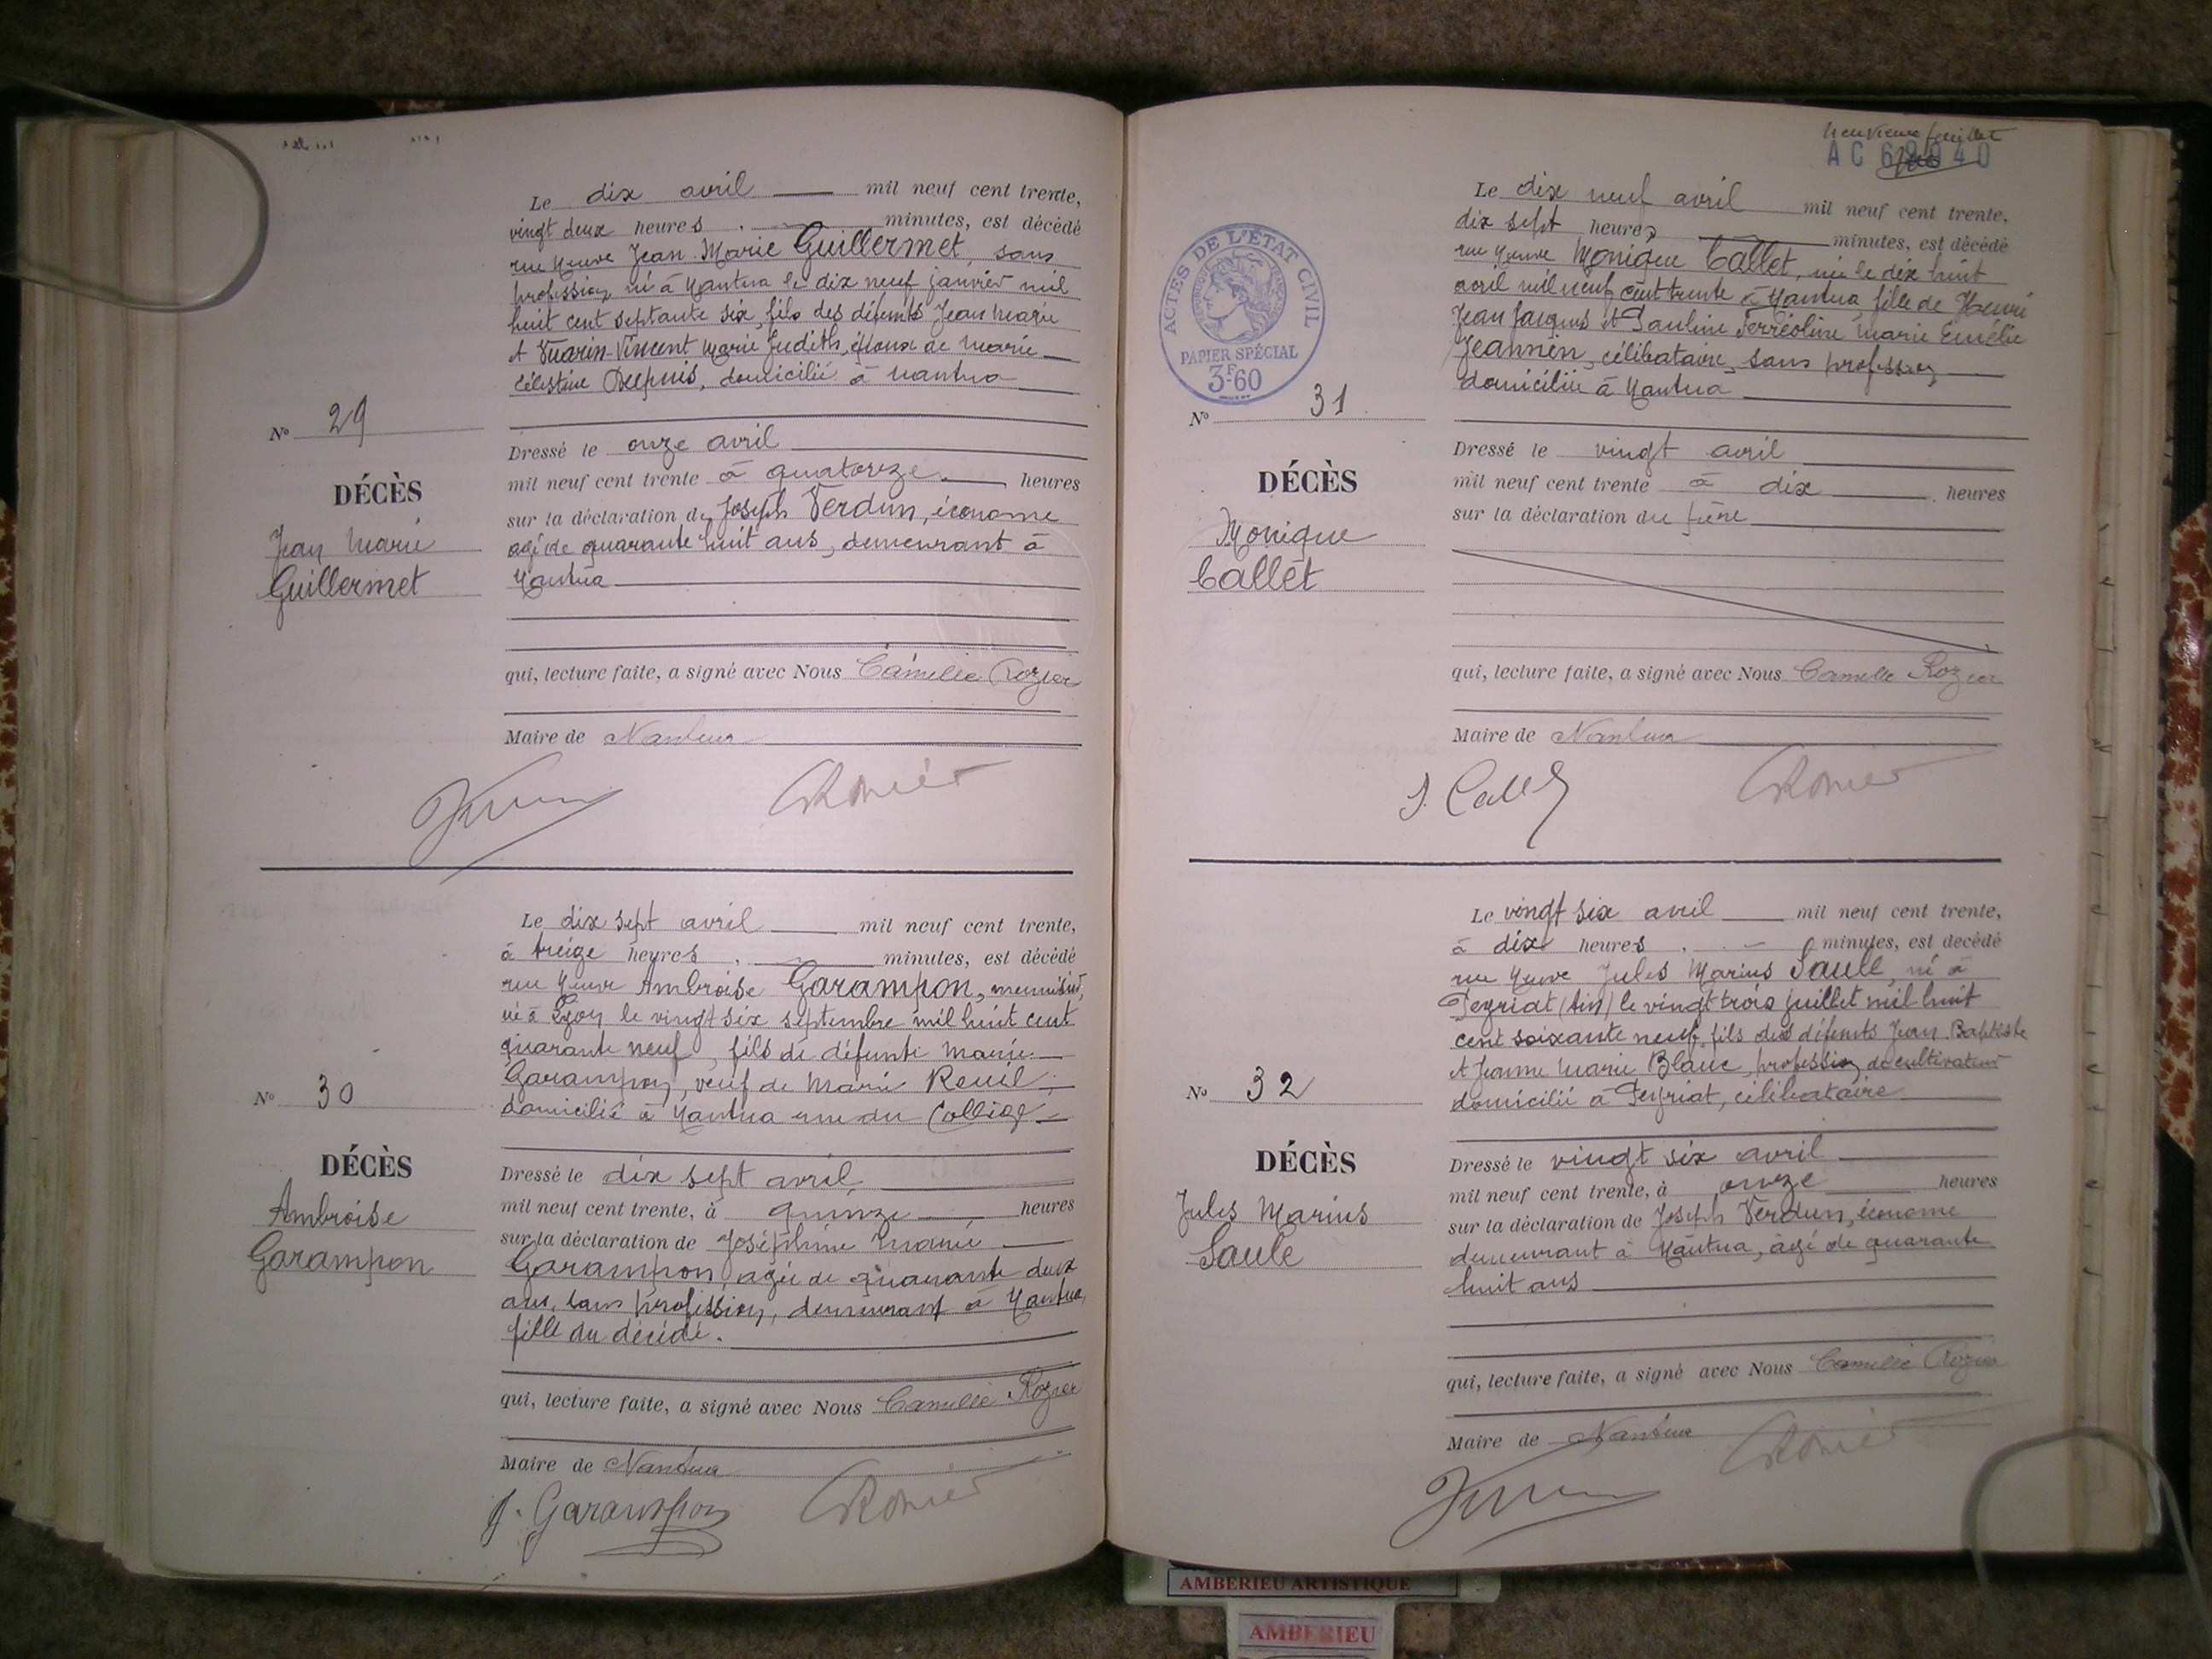 Le dix avril mil neuf cent trente,
vingt deux heures minutes, est décédé
rue Neuve Jean Marie Guillermet, sans
profession né à Nantua le dix neuf janvier mil
huit cent septante six, fils des défunts Jean Marie
et Vuarin-Vincent Marie Judith, époux de Marie
Célestine Dupuis, domicilié à Nantua
Nº 29
DÉCÈS
Jean Marie
Guillermet
Dressé le onze avril
mil neuf cent trente à quatorze heures
sur la déclaration de Joseph Verdun, économe
agé de quarante huit ans, demeurant à
Nantua
qui, lecture faite, a signé avec Nous Camille Rozier
Maire de Nantua
Le dix sept avril mil neuf cent trente,
à treize heures minutes, est décédé
rue Neuve Ambroise Garampon, menuisier,
né à Lyon le vingt six septembre mil huit cent
quarante neuf, fils de défunte Marie
Garampon, veuf de Marie Revil,
domicilié à Nantua rue du Collège
Nº 30
DÉCÈS
Ambroise
Garampon
Dressé le dix sept avril,
mil neuf cent trente, à quinze heures
sur la déclaration de Joséphine Marie
Garampon, agée de quarante deux
ans, sans profession, demeurant à Nantua,
fille du décédé.
qui, lecture faite, a signé avec Nous Camille Rozier
Maire de Nantua
J. Garampon CRozier
neuvième feuillet
AC 40
ACTES DE L'ÉTAT CIVIL
PAPIER SPÉCIAL
3F-60
Le dix neuf avril mil neuf cent trente,
dix sept heures minutes, est décédé
rue Neuve Monique Callet, née le dix huit
avril mil neuf cent trente à Nantua fille de Henri
Jean Jacques et Pauline Ferréoline Marie Emélie
Jeannin, célibataire, sans profession
domiciliée à Nantua
Nº 31
DÉCÈS
Monique
Callet
Dressé le vingt avril
mil neuf cent trente à dix heures
sur la déclaration du père
qui, lecture faite, a signé avec Nous Camille Rozier
Maire de Nantua
CRozier
Le vingt six avril mil neuf cent trente,
à dix heures minutes, est decédé
rue Neuve Jules Marius Saule, né à
Peyriat (Ain) le vingt trois juillet mil huit
cent soixante neuf, fils des défunts Jean Baptiste
et Jeanne Marie Blanc, profession de cultivateur
domicilié à Peyriat, célibataire
Nº 32
DÉCÈS
Jules Marius
Saule
Dressé le vingt six avril
mil neuf cent trente, à onze heures
sur la déclaration de Joseph Verdun, économe
demeurant à Nantua, âgé de quarante
huit ans
qui, lecture faite, a signé avec Nous Camille Rozier
Maire de Nantua
CRozier
AMBERIEU ARTISTIQUE
AMBERIEU